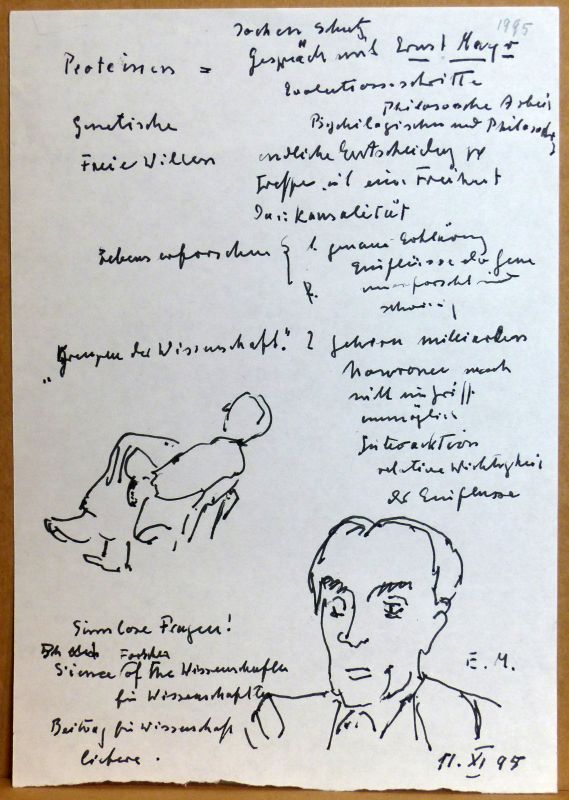 1995
Jochen Schutz
Gespräch mit Ernst Mayr
Proteinen =
Evolutionsschritte
Philosoche Arbeit
Genetische
Psychilogischer und Philosoche
Freie Willen
endliche Entscheidung zu
treffen ist eine Freiheit
Kausalität
Lebens erforschen { 1. genaue Erklärung
Einflüsse der Gene
unerforscht und
schwierig
2.
"Grenzen der Wissenschaft." 2 Gehirn milliarden
Neuronen noch
nicht
unmöglich
Interaktion
relative Wichtigkeit
der Einflüsse
Sinnlose Fragen!
Forscher
Science of the Wissenschaftler
für Wissenschaftler
Beitrag für Wissenschaft
E. M.
11. XI 95